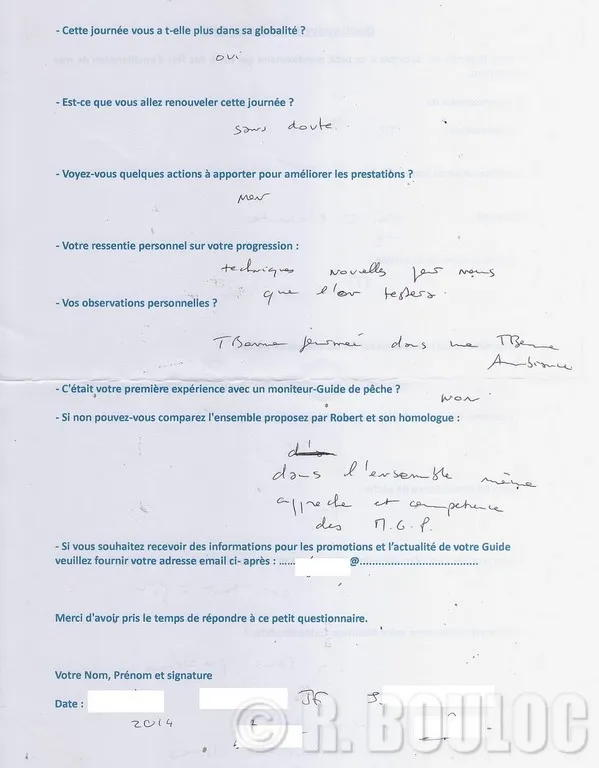 - Cette journée vous a t-elle plus dans sa globalité ?
oui
- Est-ce que vous allez renouveler cette journée ?
sans doute.
- Voyez-vous quelques actions à apporter pour améliorer les prestations ?
non
- Votre ressentie personnel sur votre progression :
techniques nouvelles pour nous
que l'on testera.
- Vos observations personnelles ?
TBonne journée dans une TBonne
Ambiance
- C'était votre première expérience avec un moniteur-Guide de pêche ?
non
- Si non pouvez-vous comparez l'ensemble proposez par Robert et son homologue :
dans l'ensemble même
approche et compétence
des M.G.P.
- Si vous souhaitez recevoir des informations pour les promotions et l'actualité de votre Guide
veuillez fournir votre adresse email ci- après : ...... @......................................
Merci d'avoir pris le temps de répondre à ce petit questionnaire.
Votre Nom, Prénom et signature
Date :
2014
© R. BOULOC